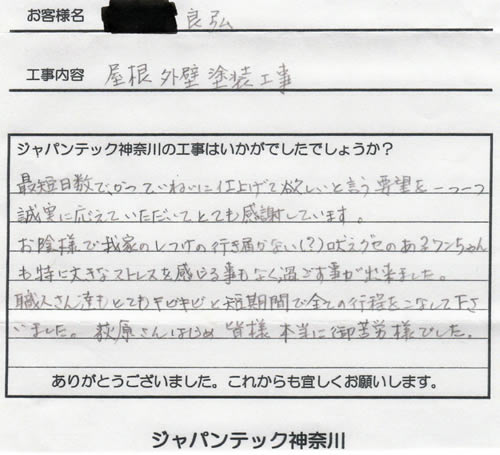 お客様名 良弘
工事内容 屋根 外壁 塗装工事
ジャパンテック神奈川の工事はいかがでしたでしょうか？
最短日数で、かつていねいに仕上げて欲しいと言う要望を一つ一つ
誠実に応えていただいてとても感謝しています。
お陰様で我家のしつけの行き届かない(?)ロビングセのあるワンちゃん
も特に大きなストレスを感じる事もなく過ごす事が出来ました。
職人さん達もとてもキビキビと短期間で全ての行程をこなして下さ
いました。荻原さんはじめ皆様本当に御苦労様でした。
ありがとうございました。これからも宜しくお願いします。
ジャパンテック神奈川